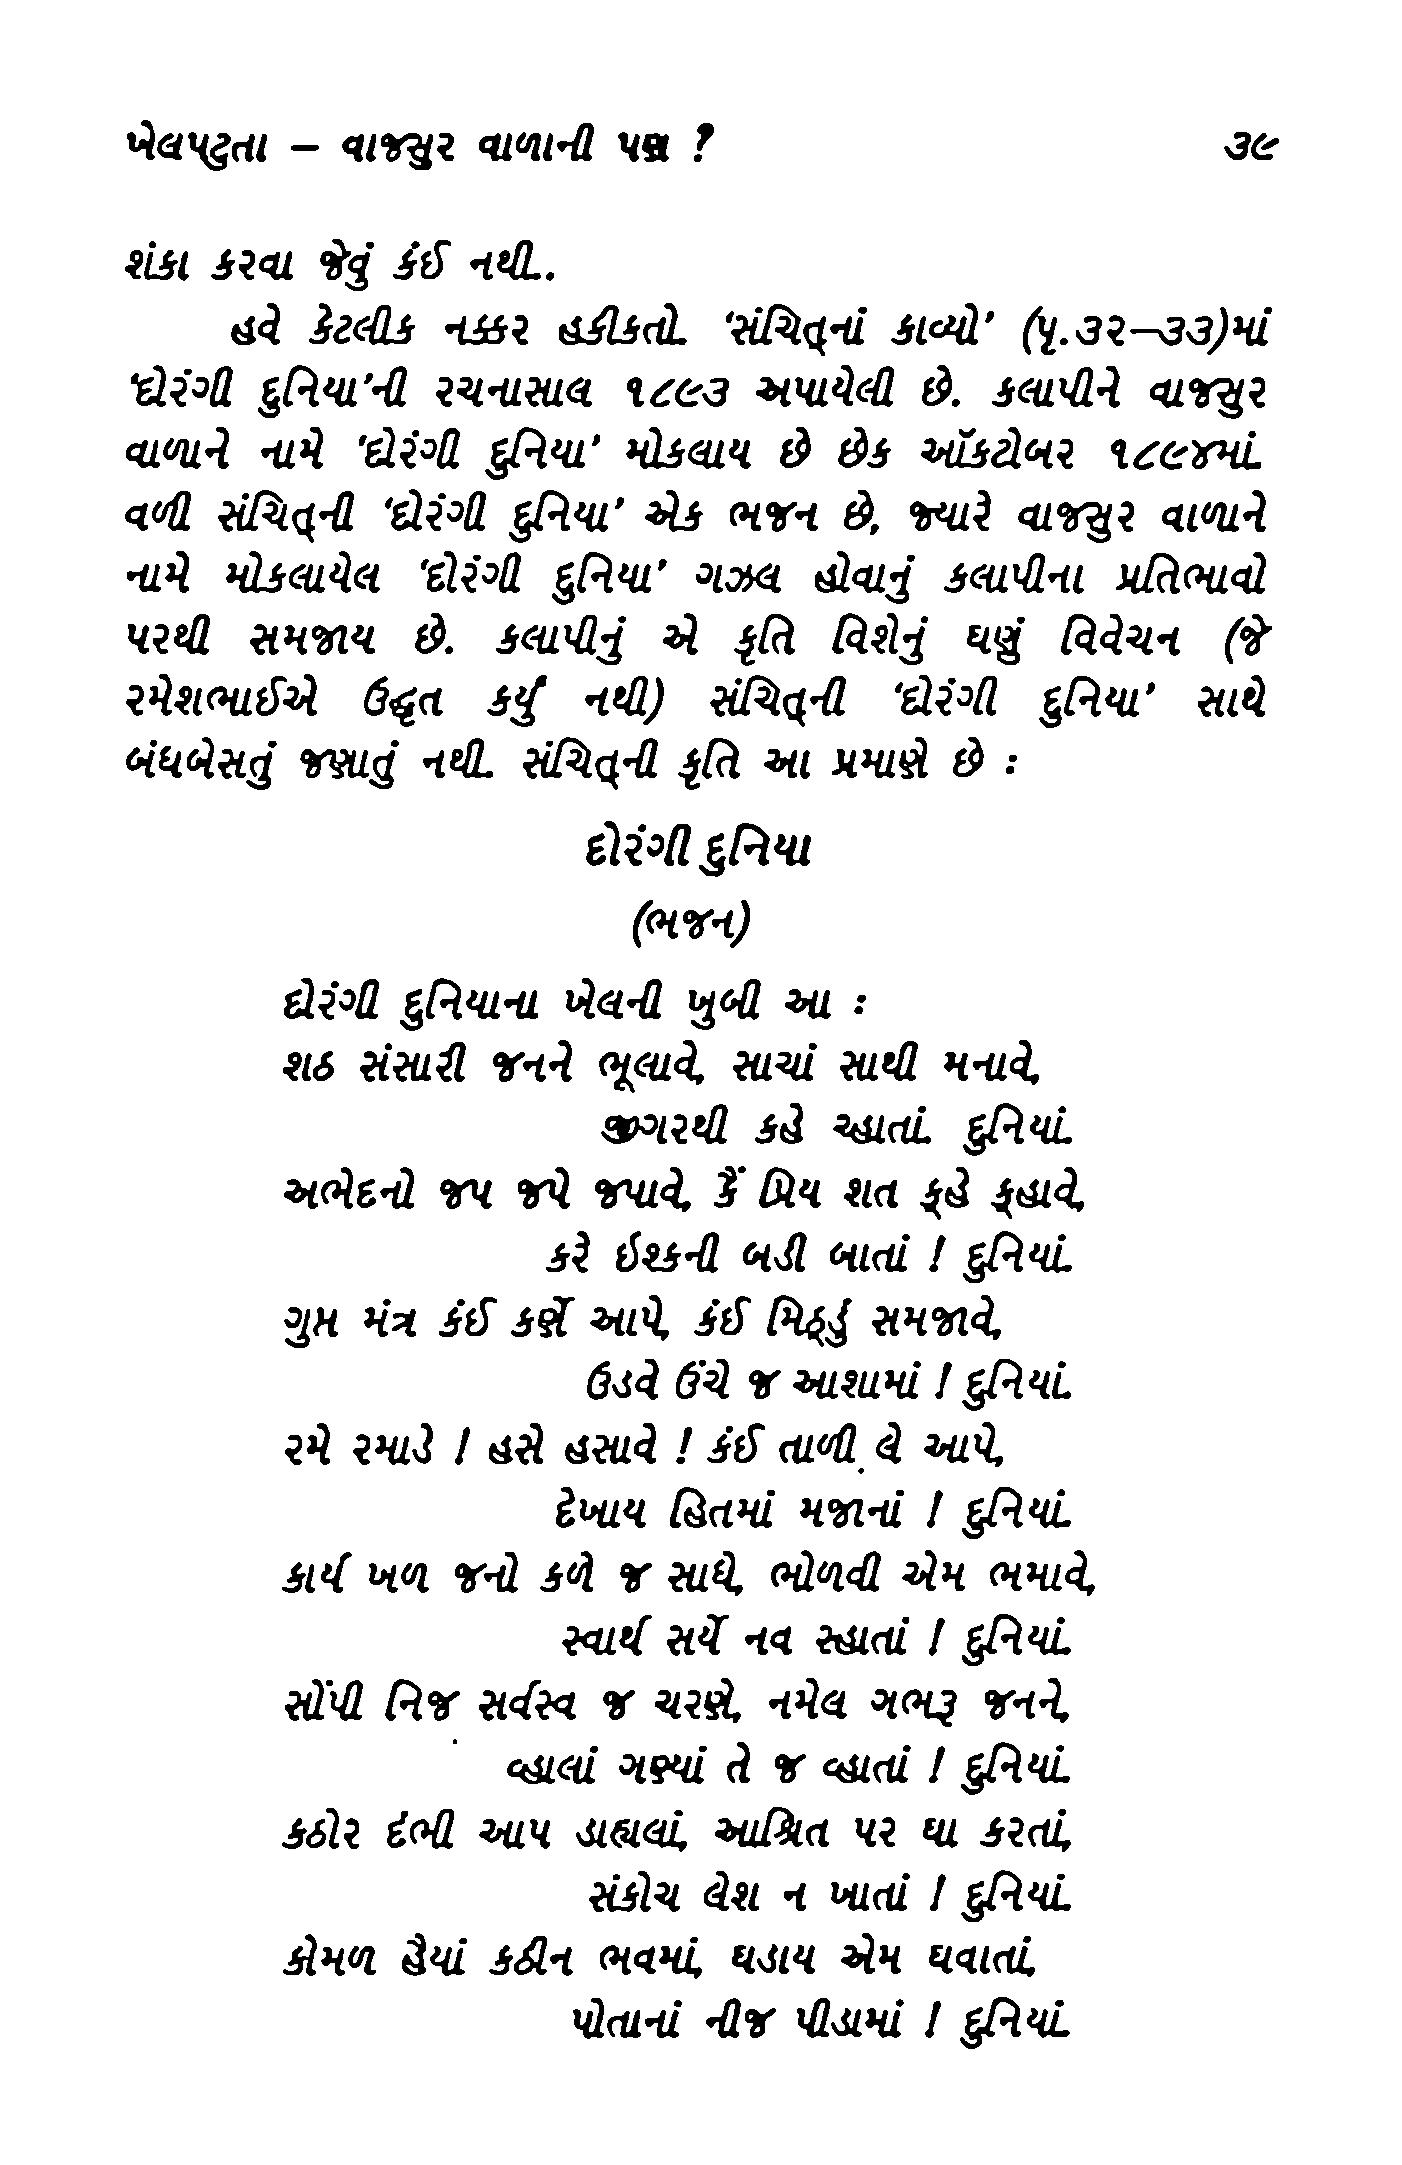 ખેલપટુતા – વાજસુર વાળાની પણ ? ૩૯
શંકા કરવા જેવું કંઈ નથી..
હવે કેટલીક નક્કર હકીકતો. ‘સંચિત્‌નાં કાવ્યો’ (પૃ.૩૨–૩૩)માં
‘દોરંગી દુનિયા’ની રચનાસાલ ૧૮૯૩ અપાયેલી છે. કલાપીને વાજસુર
વાળાને નામે ‘દોરંગી દુનિયા’ મોકલાય છે છેક ઑકટોબર ૧૮૯૪માં.
વળી સંચિત્‌ની ‘દોરંગી દુનિયા’ એક ભજન છે, જ્યારે વાજસુર વાળાને
નામે મોકલાયેલ ‘દોરંગી દુનિયા’ ગઝલ હોવાનું કલાપીના પ્રતિભાવો
પરથી સમજાય છે. કલાપીનું એ કૃતિ વિશેનું ઘણું વિવેચન (જે
રમેશભાઈએ ઉદ્ધૃત કર્યું નથી) સંચિત્‌ની ‘દોરંગી દુનિયા’ સાથે
બંધબેસતું જણાતું નથી. સંચિત્‌ની કૃતિ આ પ્રમાણે છે :
દોરંગી દુનિયા
(ભજન)
દોરંગી દુનિયાના ખેલની ખુબી આ :
શઠ સંસારી જનને ભૂલાવે, સાચાં સાથી મનાવે,
જીગરથી કહે ચ્હાતાં. દુનિયાં.
અભેદનો જપ જપે જપાવે, કૈં પ્રિય શત ક્‌હે ક્‌હાવે,
કરે ઈશ્કની બડી બાતાં ! દુનિયાં.
ગુપ્ત મંત્ર કંઈ કર્ણે આપે, કંઈ મિઠ્‌ડું સમજાવે,
ઉડવે ઉંચે જ આશામાં ! દુનિયાં.
રમે રમાડે ! હસે હસાવે ! કંઈ તાળી લે આપે,
દેખાય હિતમાં મજાનાં ! દુનિયાં.
કાર્ય ખળ જનો કળે જ સાધે, ભોળવી એમ ભમાવે,
સ્વાર્થ સર્યે નવ સ્હાતાં ! દુનિયાં.
સોંપી નિજ સર્વસ્વ જ ચરણે, નમેલ ગભરૂ જનને,
વ્હાલાં ગણ્યાં તે જ વ્હાતાં ! દુનિયાં.
કઠોર દંભી આપ ડાહ્યલાં, આશ્રિત પર ઘા કરતાં,
સંકોચ લેશ ન ખાતાં ! દુનિયાં.
કોમળ હૈયાં કઠીન ભવમાં, ઘડાય એમ ઘવાતાં,
પોતાનાં નીજ પીડામાં ! દુનિયાં.